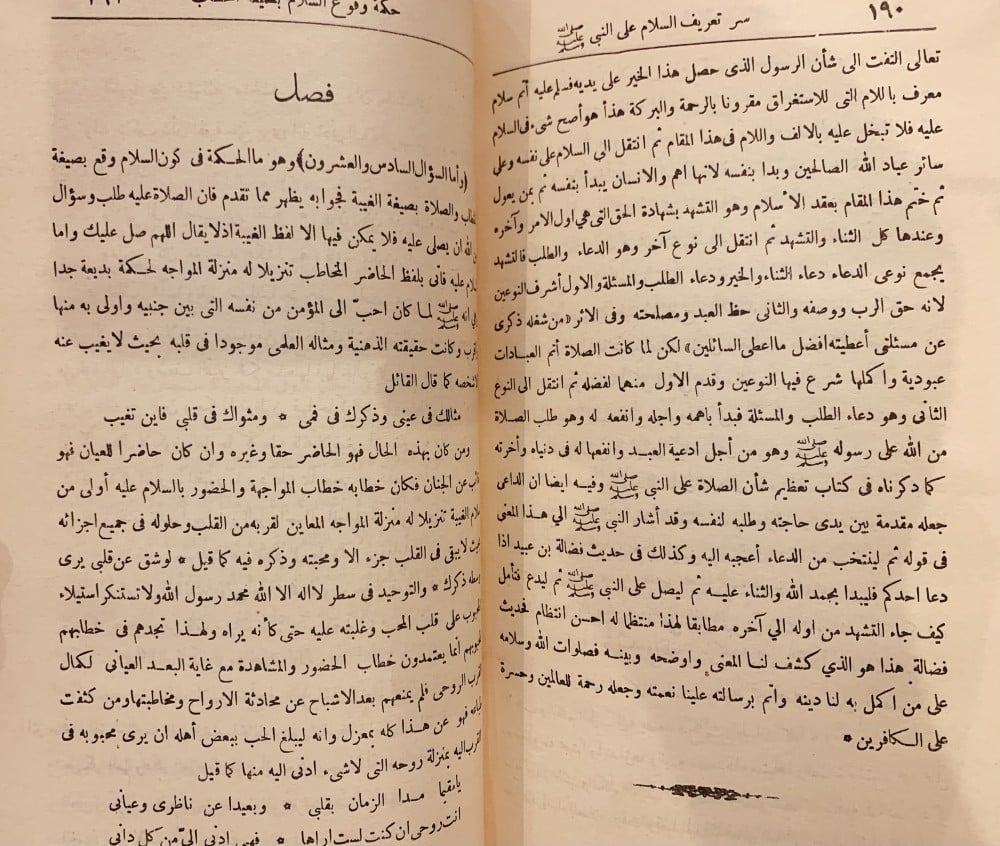 ١٩٠
سر تعريف السلام على النبي ﷺ
تعالى التفت الى شأن الرسول الذى حصل هذا الخير على يديه فسلم عليه أتم سلام
معرف باللام التى للاستغراق مقرونا بالرحمة والبركة هذا هو أصح شىء فى السلام
عليه فلا تبخل عليه بالالف واللام فى هذا المقام ثم انتقل الى السلام على نفسه وعلى
سائر عباد الله الصالحين وبدا بنفسه لانها اهم والانسان يبدأ بنفسه ثم بمن يعول
ثم ختم هذا المقام بعقد الأسلام وهو التشهد بشهادة الحق التى هي اول الامر وآخره
وعندها كل الثناء والتشهد ثم انتقل الى نوع آخر وهو الدعاء والطلب فالتشهد
يجمع نوعى الدعاء دعاء الثناء والخير ودعاء الطلب والمسئلة والاول أشرف النوعين
لانه حق الرب ووصفه والثانى حظ العبد ومصلحته وفى الاثر «من شغله ذكرى
عن مسئلتى أعطيته افضل ما اعطى السائلين» لكن لما كانت الصلاة أتم العبادات
عبودية وأكملها شرع فيها النوعين وقدم الاول منهما لفضله ثم انتقل الى النوع
الثانى وهو دعاء الطلب والمسئلة فبدأ باهمه واجله وانفعه له وهو طلب الصلاة
من الله على رسوله ﷺ وهو من أجل ادعية العبد وانفعها له فى دنياه وأخرته
كما ذكرناه فى كتاب تعظيم شأن الصلاة على النبي ﷺ وفيه ايضا ان الداعى
جعله مقدمة بين يدى حاجته وطلبه لنفسه وقد أشار النبي ﷺ الي هذا المعنى
فى قوله ثم لينتخب من الدعاء أعجبه اليه وكذلك فى حديث فضالة بن عبيد اذا
دعا احدكم فليبدا بحمد الله والثناء عليه ثم ليصل على النبي ﷺ ثم ليدع فتأمل
كيف جاء التشهد من اوله الي آخره مطابقا لهذا منتظما له احسن انتظام فحديث
فضالة هذا هو الذي كشف لنا المعنى واوضحه وبينه فصلوات الله وسلامه
على من أكمل به لنا دينه وأتم برسالته علينا نعمته وجعله رحمة للعالمين وحسرة
على الكافرين *
حكمة وقوع السلام بصيغة الخطاب
فصل
(وأما السؤال السادس والعشرون) وهو ما الحكمة فى كون السلام وقع بصيغة
والصلاة بصيغة الغيبة فجوابه يظهر مما تقدم فان الصلاة عليه طلب وسؤال
الله ان يصلى عليه فلا يمكن فيها الا لفظ الغيبة اذ لا يقال اللهم صل عليك واما
عليه فأتى بلفظ الحاضر المخاطب تنزيلا له منزلة المواجه لحكمة بديعة جدا
انه ﷺ لما كان احبّ الى المؤمن من نفسه التى بين جنبيه واولى به منها
وكانت حقيقته الذهنية ومثاله العلمى موجودا فى قلبه بحيث لا يغيب عنه
شخصه كما قال القائل
مثالك فى عينى وذكرك فى فمى * ومثواك فى قلبى فاين تغيب
ومن كان بهذه الحال فهو الحاضر حقا وغيره وان كان حاضرا للعيان فهو
عن الجنان فكان خطابه خطاب المواجهة والحضور بالسلام عليه أولى من
الغيبة تنزيلا له منزلة المواجه المعاين لقربه من القلب وحلوله فى جميع اجزائه
لا يبقى فى القلب جزء الا ومحبته وذكره فيه كما قيل * لو شق عن قلبى يرى
وسطه ذكرك * والتوحيد فى سطر لا اله الا الله محمد رسول الله ولا تستنكر استيلاء
على قلب المحب وغلبته عليه حتى كأنه يراه ولهذا تجدهم فى خطابهم
انما يعتمدون خطاب الحضور والمشاهدة مع غاية البعد العيانى لكمال
القرب الروحى فلم يمنعهم بعد الاشباح عن محادثة الارواح ومخاطبتها ومن كثفت
فهو عن هذا كله بمعزل وانه ليبلغ الحب ببعض أهله ان يرى محبوبه فى
القرب اليه بمنزلة روحه التى لا شىء ادنى اليه منها كما قيل
يا مقيما مدا الزمان بقلبى * وبعيدا عن ناظرى وعيانى
انت روحى ان كنت لست اراها * فهى ادنى الىّ من كل دانى